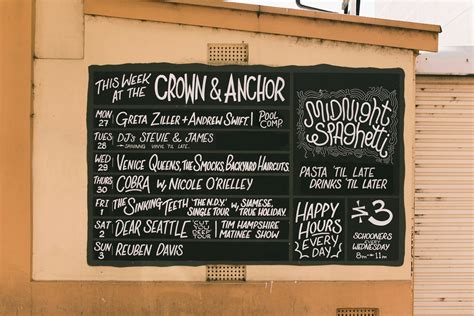 THIS WEEK AT THE CROWN & ANCHOR
MON 27 GRETA ZILLER + ANDREW SWIFT POOL COMP.
TUES 28 DJs STEVIE & JAMES
SPINNING VINYL 'TIL LATE
WED 29 VENICE QUEENS, THE SMOCKS, BACKYARD HAIRCUTS.
THURS 30 COBRA w/ NICOLE O'RIELLEY
FRI 1 THE SINKING TEETH 'THE N.D.Y.' SINGLE TOUR w/ SIAMESE, TRUE HOLIDAY.
SAT 2 DEAR SEATTLE CUT DEEP TOUR TIM HAMPSHIRE MATINEE SHOW
SUN 3 REUBEN DAVIS
MIDNIGHT SPAGHETTI
PASTA 'TIL LATE
DRINKS 'TIL LATER
HAPPY HOURS EVERY DAY
$3
SCHOONERS EVERY WEDNESDAY
8pm → 11pm